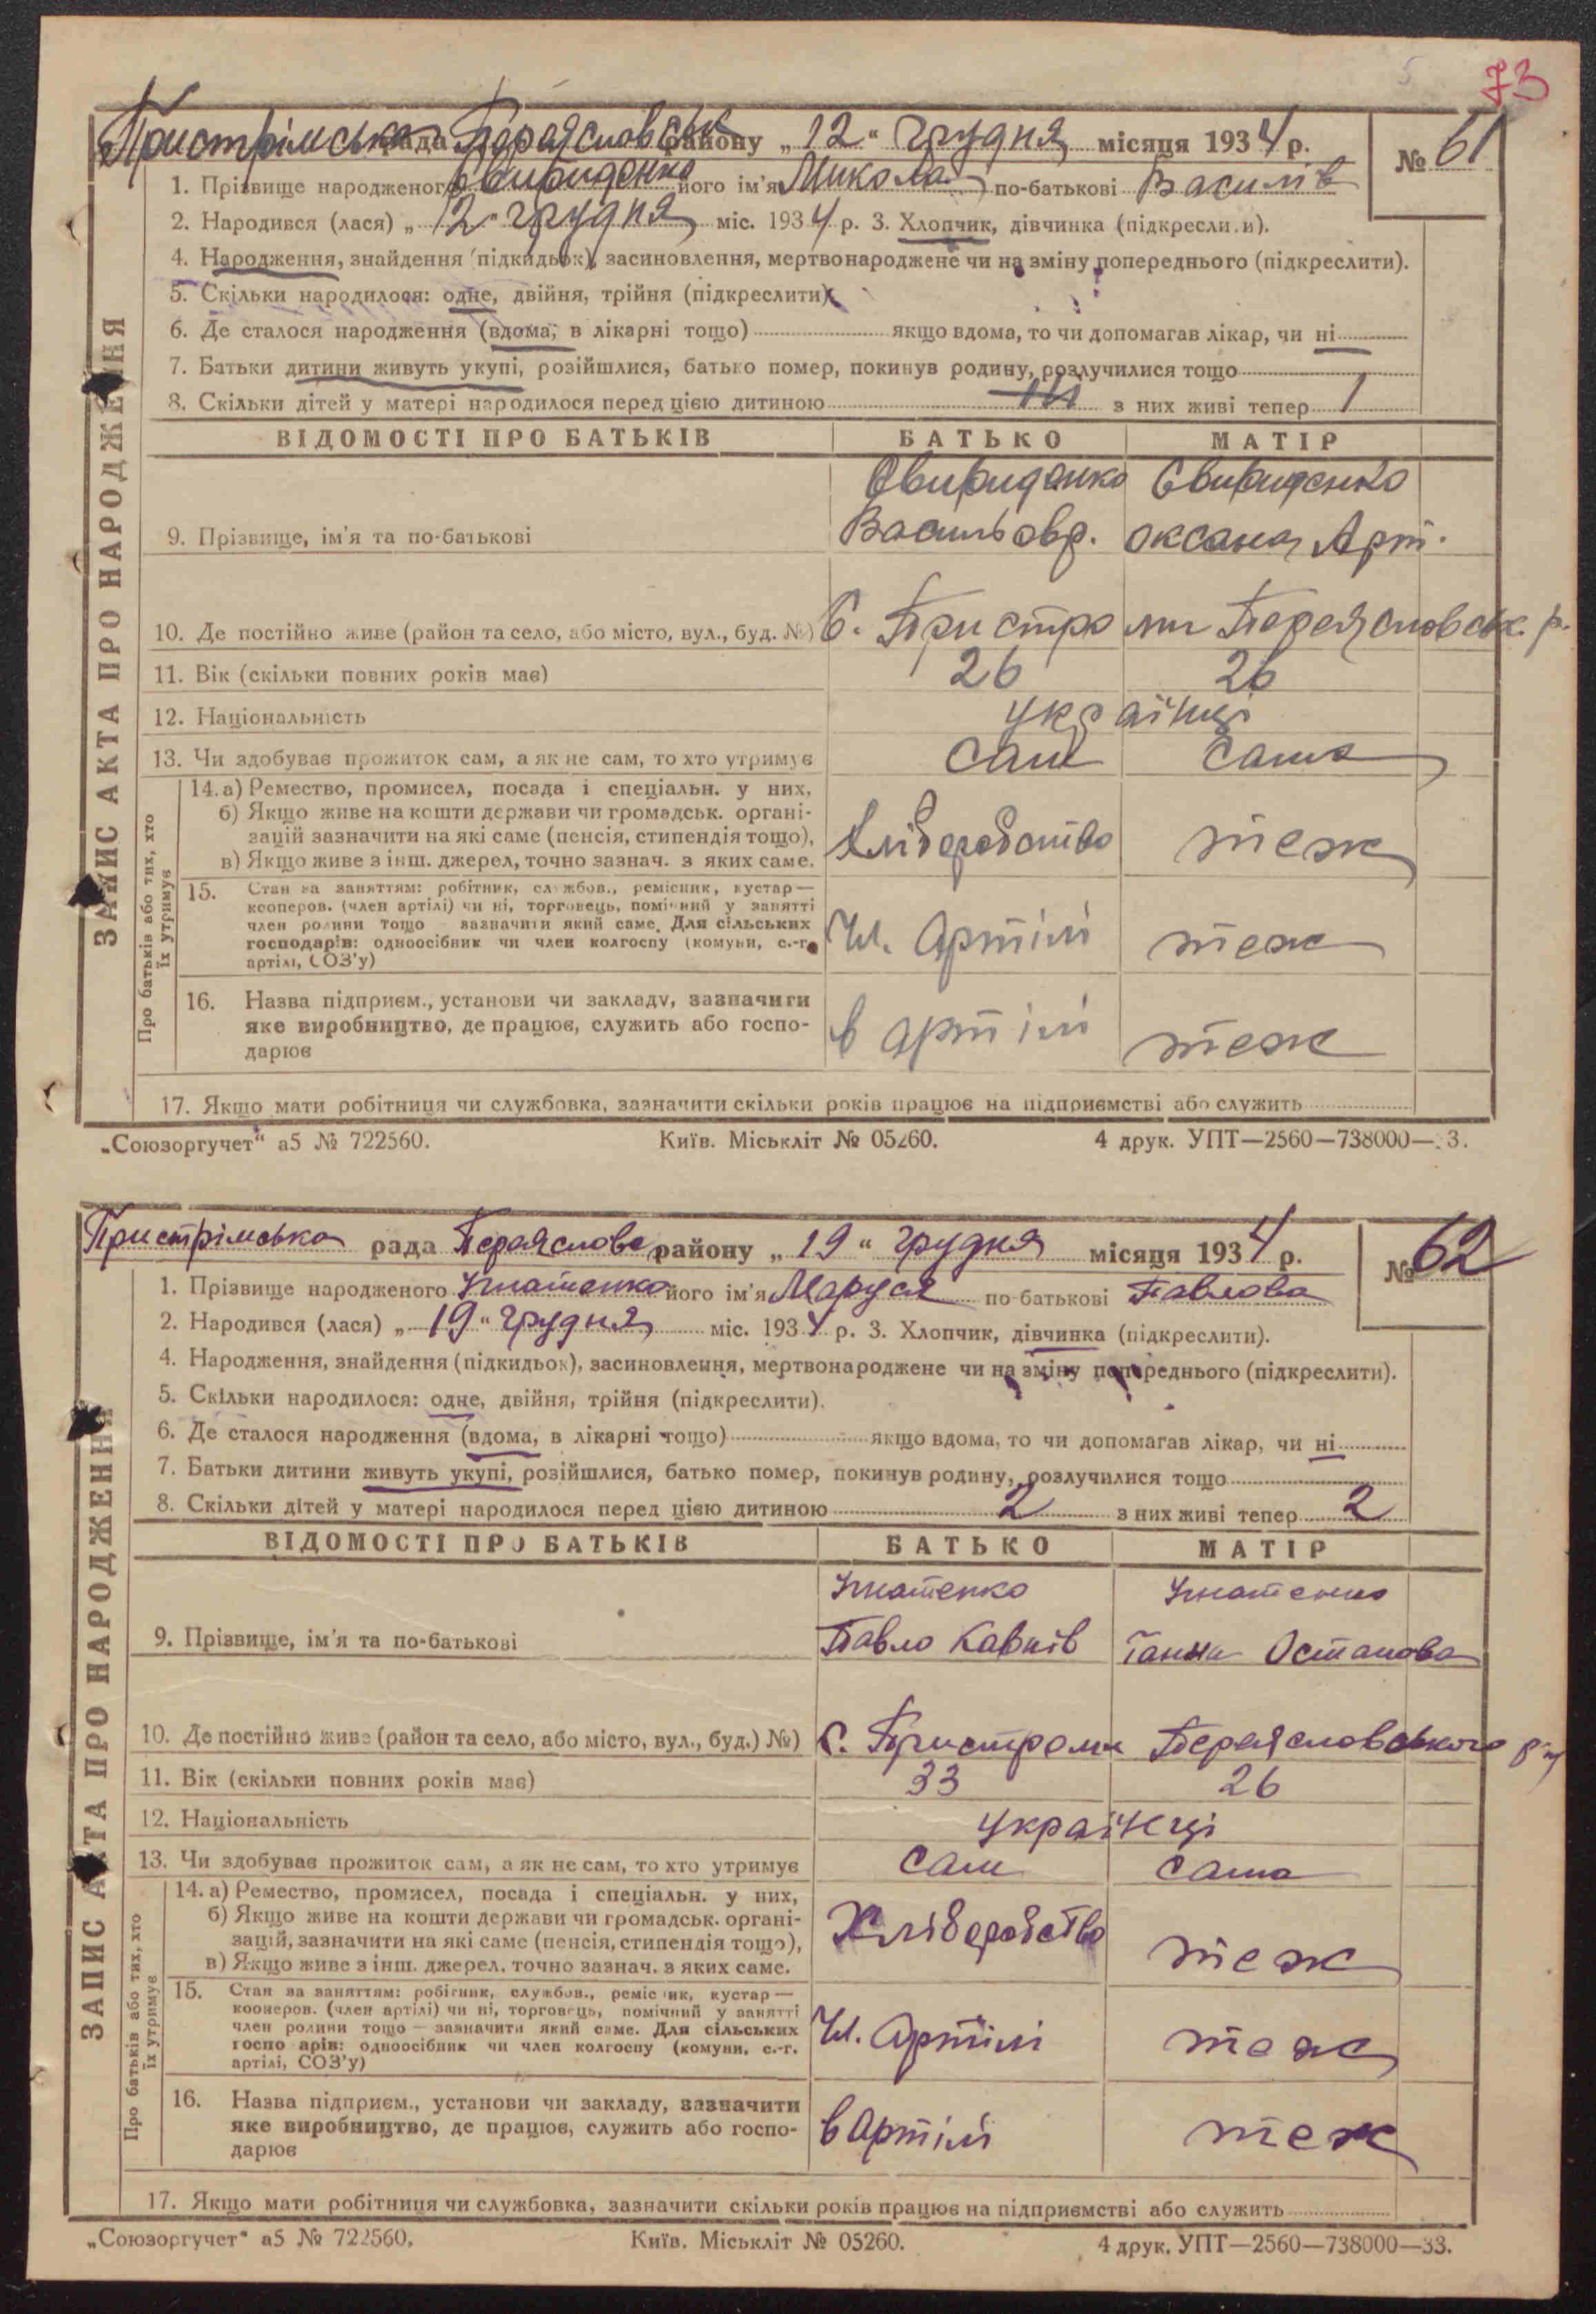 73
Пристрімська рада Переяславськ району „12“ грудня місяця 1934 р. № 61
1. Прізвище народженого Свириденко його ім'я Микола по-батькові Василів
2. Народився (лася) „12“ грудня міс. 1934 р. 3. Хлопчик, дівчинка (підкреслити).
4. Народження, знайдення (підкидьок), засиновлення, мертвонароджене чи на зміну попереднього (підкреслити).
5. Скільки народилося: одне, двійня, трійня (підкреслити)
6. Де сталося народження (вдома, в лікарні тощо) якщо вдома, то чи допомагав лікар, чи ні
7. Батьки дитини живуть укупі, розійшлися, батько помер, покинув родину, розлучилися тощо
8. Скільки дітей у матері народилося перед цією дитиною з них живі тепер 1
ЗАПИС АКТА ПРО НАРОДЖЕННЯ
ВІДОМОСТІ ПРО БАТЬКІВ БАТЬКО МАТІР
Свириденко Свириденко
9. Прізвище, ім'я та по-батькові Василь Оксана Арт.
10. Де постійно живе (район та село, або місто, вул., буд. №) С. Пристроми Переяславськ. р.
11. Вік (скільки повних років має) 26 26
12. Національність українці
13. Чи здобуває прожиток сам, а як не сам, то хто утримує сам сама
Про батьків або тих, хто їх утримує
14. а) Ремество, промисел, посада і спеціальн. у них,
б) Якщо живе на кошти держави чи громадськ. органі-
зацій зазначити на які саме (пенсія, стипендія тощо), Хліборобство теж
в) Якщо живе з інш. джерел, точно зазнач. з яких саме.
15. Стан за заняттям: робітник, службов., ремісник, кустар —
кооперов. (член артілі) чи ні, торговець, помічний у занятті
член родини тощо зазначити який саме. Для сільських
господарів: одноосібник чи член колгоспу (комуни, с.-г. Чл. артілі теж
артілі, СОЗ'у)
16. Назва підприєм., установи чи закладу, зазначити
яке виробництво, де працює, служить або госпо- в артілі теж
дарює
17. Якщо мати робітниця чи службовка, зазначити скільки років працює на підприємстві або служить
„Союзоргучет“ а5 № 722560. Київ. Міськліт № 05260. 4 друк. УПТ—2560—738000—33.
Пристрімська рада Переяславс району „19“ грудня місяця 1934 р. № 62
1. Прізвище народженого Игнатенко його ім'я Маруся по-батькові Павлова
2. Народився (лася) „19“ грудня міс. 1934 р. 3. Хлопчик, дівчинка (підкреслити).
4. Народження, знайдення (підкидьок), засиновлення, мертвонароджене чи на зміну попереднього (підкреслити).
5. Скільки народилося: одне, двійня, трійня (підкреслити).
6. Де сталося народження (вдома, в лікарні тощо) якщо вдома, то чи допомагав лікар, чи ні
7. Батьки дитини живуть укупі, розійшлися, батько помер, покинув родину, розлучилися тощо
8. Скільки дітей у матері народилося перед цією дитиною 2 з них живі тепер 2
ЗАПИС АКТА ПРО НАРОДЖЕННЯ
ВІДОМОСТІ ПРО БАТЬКІВ БАТЬКО МАТІР
Игнатенко Игнатенко
9. Прізвище, ім'я та по-батькові Павло Ганна Остапова
10. Де постійно живе (район та село, або місто, вул., буд.) №) С. Пристроми Переяславського р-ну
11. Вік (скільки повних років має) 33 26
12. Національність українці
13. Чи здобуває прожиток сам, а як не сам, то хто утримує сам сама
Про батьків або тих, хто їх утримує
14. а) Ремество, промисел, посада і спеціальн. у них,
б) Якщо живе на кошти держави чи громадськ. органі-
зацій, зазначити на які саме (пенсія, стипендія тощо), Хліборобство теж
в) Якщо живе з інш. джерел. точно зазнач. з яких саме.
15. Стан за заняттям: робітник, службов., ремісник, кустар —
кооперов. (член артілі) чи ні, торговець, помічний у занятті
член родини тощо — зазначити який саме. Для сільських Чл. артілі теж
господарів: одноосібник чи член колгоспу (комуни, с.-г.
артілі, СОЗ'у)
16. Назва підприєм., установи чи закладу, зазначити
яке виробництво, де працює, служить або госпо- в артілі теж
дарює
17. Якщо мати робітниця чи службовка, зазначити скільки років працює на підприємстві або служить
„Союзоргучет“ а5 № 722560. Київ. Міськліт № 05260. 4 друк. УПТ—2560—738000—33.